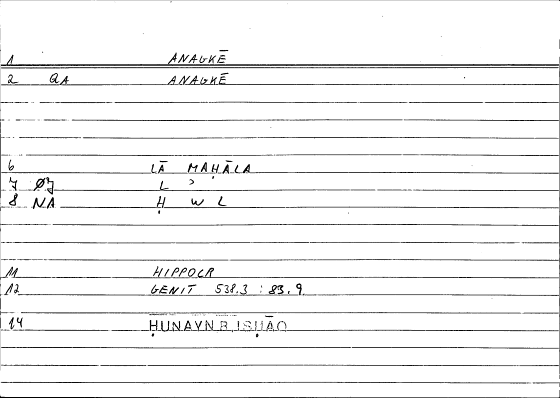 1 ANAGKĒ
2 QA ANAGKĒ
6 LĀ MAḤĀLA
7 ØJ L ʾ
8 NA Ḥ W L
11 HIPPOCR
12 GENIT 538.3 : 83.9
14 ḤUNAYN B. ISḤĀQ